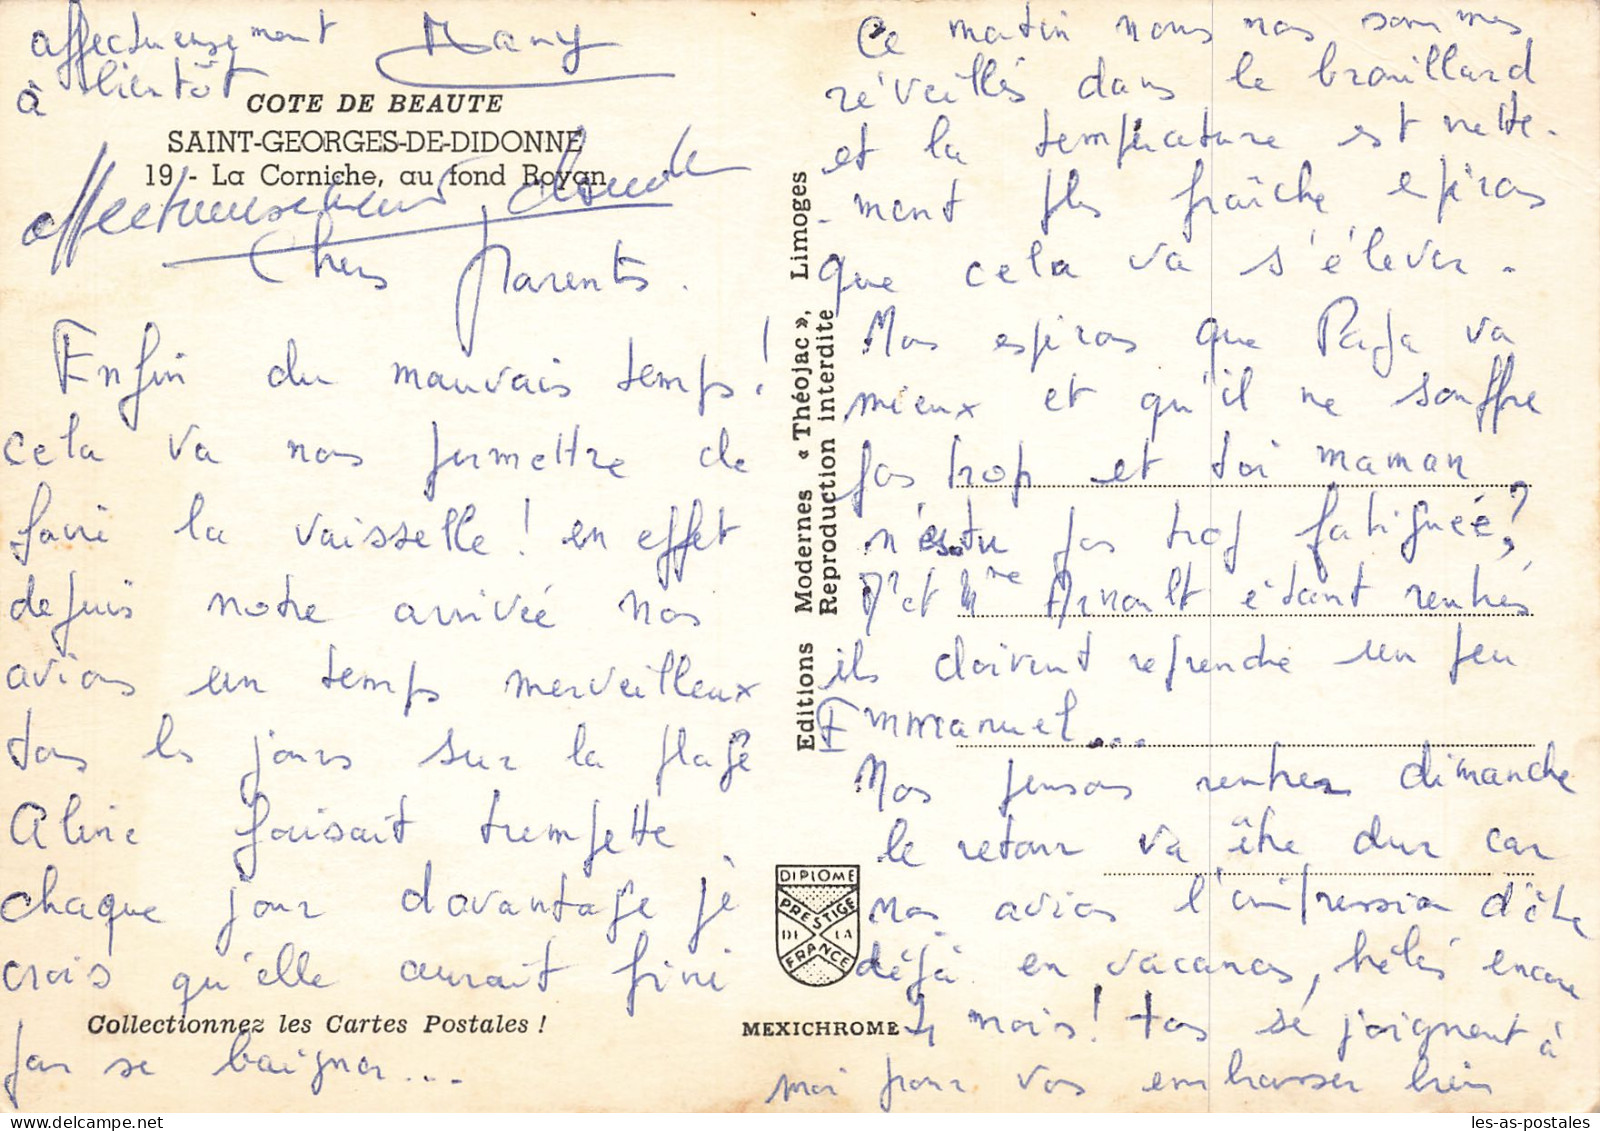 Chers Parents.
Enfin du mauvais temps !
cela va nous permettre de
faire la vaisselle ! en effet
depuis notre arrivée nous
avions un temps merveilleux
tous les jours sur la plage
Aline faisait trempette
chaque jour davantage je
crois qu'elle aurait fini
par se baigner...
Ce matin nous nous sommes
réveillés dans le brouillard
et la température est nette-
-ment plus fraîche espérons
que cela va s'élever.
Nous espérons que Papa va
mieux et qu'il ne souffre
pas trop et toi maman
n'es-tu pas trop fatiguée ?
Mr et Mme Arnoult étant rentrés
ils doivent reprendre un peu
Emmanuel...
Nous pensons rentrer dimanche
le retour va être dur car
nous avions l'impression d'être
déjà en vacances, hélas encore
4 mois ! tous se joignent à
moi pour vous embrasser bien
affectueusement Many
à bientôt
affectueusement, Claude
COTE DE BEAUTE
SAINT-GEORGES-DE-DIDONNE
19 - La Corniche, au fond Royan
Editions Modernes « Théojac », Limoges
Reproduction interdite
DIPLOME
PRESTIGE
DE LA
FRANCE
Collectionnez les Cartes Postales !
MEXICHROME
les-as-postales